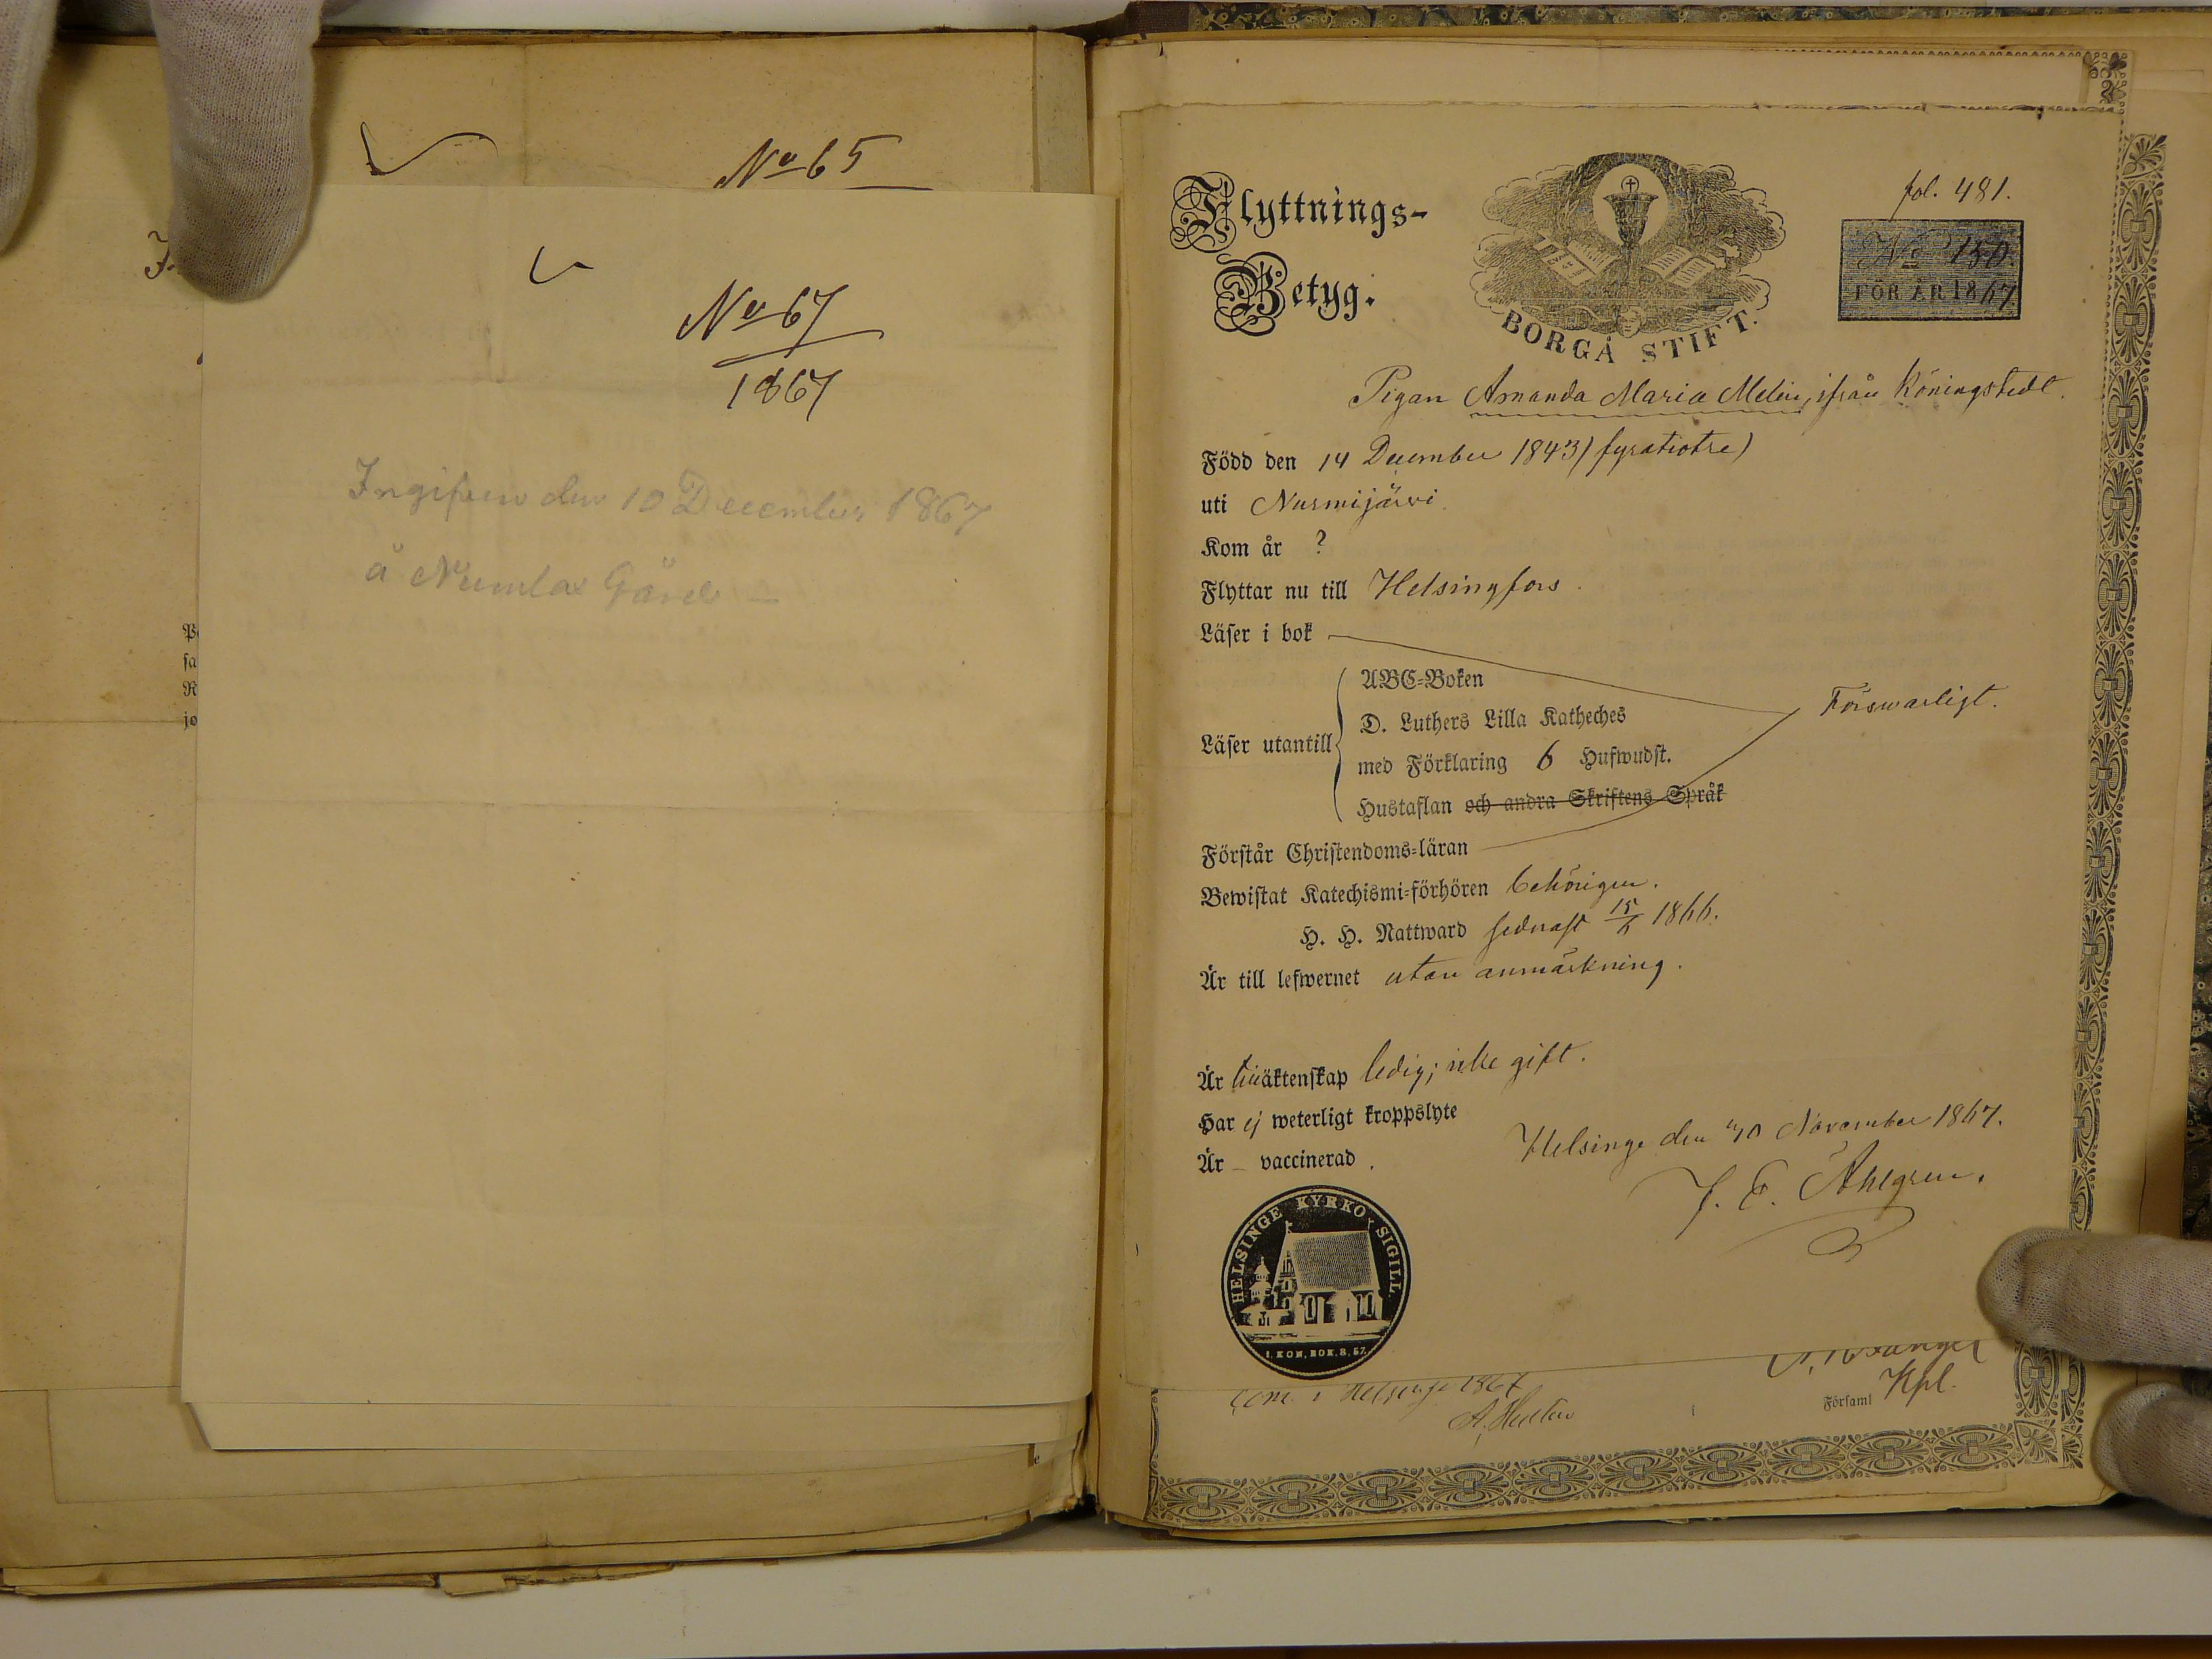 No 65
No 67
1867
Ingifven den 10 December 1867
å Numlax Gård
Flyttnings-
Betyg.
BORGÅ STIFT.
fol. 481.
No 150.
FÖR ÅR 1867.
Pigan Amanda Maria Melin, ifrån Köningstedt.
Född den 14 December 1843 (fyratiotre)
uti Nurmijärvi.
Kom år ?
Flyttar nu till Helsingfors.
Läser i bok
ABC-Boken
D. Luthers Lilla Katheches
Förswarligt.
Läser utantill
med Förklaring 6 Hufwudst.
Hustaflan och andra Skriftens Språk
Förstår Christendoms-läran
Bewistat Katechismi-förhören behörigen.
H. H. Nattward sednast 15/6 1866.
Är till lefwernet utan anmärkning.
Är till äktenskap ledig; icke gift.
Har ej weterligt kroppslyte
Är – vaccinerad.
Helsinge den 30 November 1867.
J. E. Ahlgren.
HELSINGE KYRKO SIGILL.
1. KON. BOK. 8. 57.
i Helsinge 1867
Kpl.
Församl